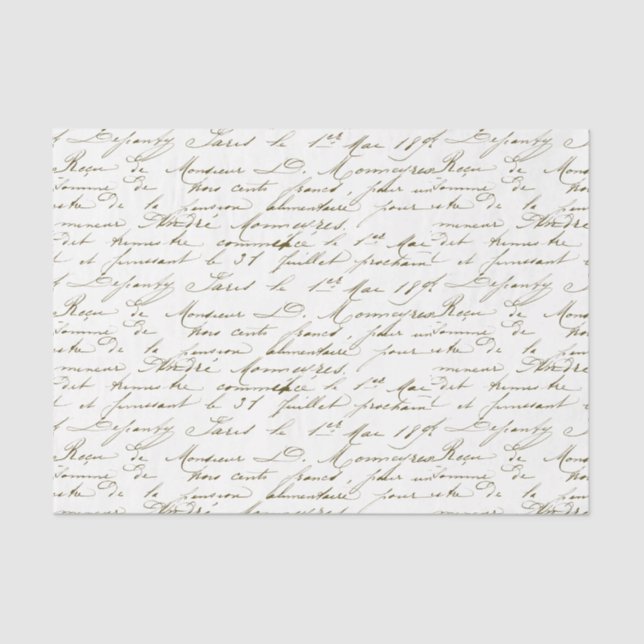 Depanty Paris le 1er Mai 189
Reçu de Monsieur D. Monneyres Reçu de Mon
Somme de trois cents francs, pour un Somme de tro
stre de la pension alimentaire pour stre de la p
mineur André Monneyres. mineur André
dit trimestre commence le 1er Mai dit trimestre co
et finissant le 31 Juillet prochain et finissant le
Depanty Paris le 1er Mai 189 Depanty P
Reçu de Monsieur D. Monneyres Reçu de Mon
Somme de trois cents francs, pour un Somme de tro
stre de la pension alimentaire pour stre de la p
mineur André Monneyres. mineur André
dit trimestre commence le 1er Mai dit trimestre co
et finissant le 31 Juillet prochain et finissant le
Depanty Paris le 1er Mai 189 Depanty P
Reçu de Monsieur D. Monneyres Reçu de Mon
Somme de trois cents francs, pour un Somme de tro
stre de la pension alimentaire pour stre de la p
mineur André Monneyres. mineur André